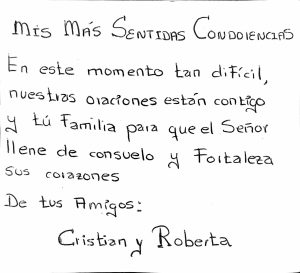 Mis Más Sentidas Condolencias
En este momento tan difícil,
nuestras oraciones están contigo
y tú Familia para que el Señor
llene de consuelo y Fortaleza
sus corazones
De tus Amigos:
Cristian y Roberta